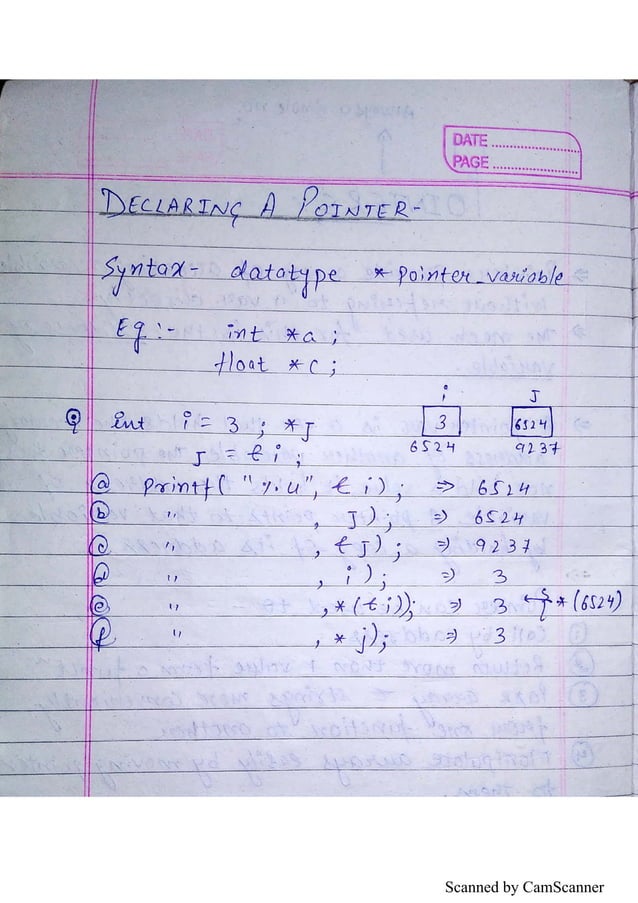 DATE ..............................
PAGE ..............................
DECLARING A POINTER -
Syntax - datatype * pointer_variable
Eg :- int *a ;
float *c ;
i J
Q int i = 3 ; *J 3 6524
J = &i ; 6524 9237
(a) printf( "%u", &i) ; => 6524
(b) " , J) ; => 6524
(c) " , &J) ; => 9237
(d) " , i) ; => 3
(e) " , *(&i)); => 3 *(6524)
(f) " , *j); => 3
Scanned by CamScanner